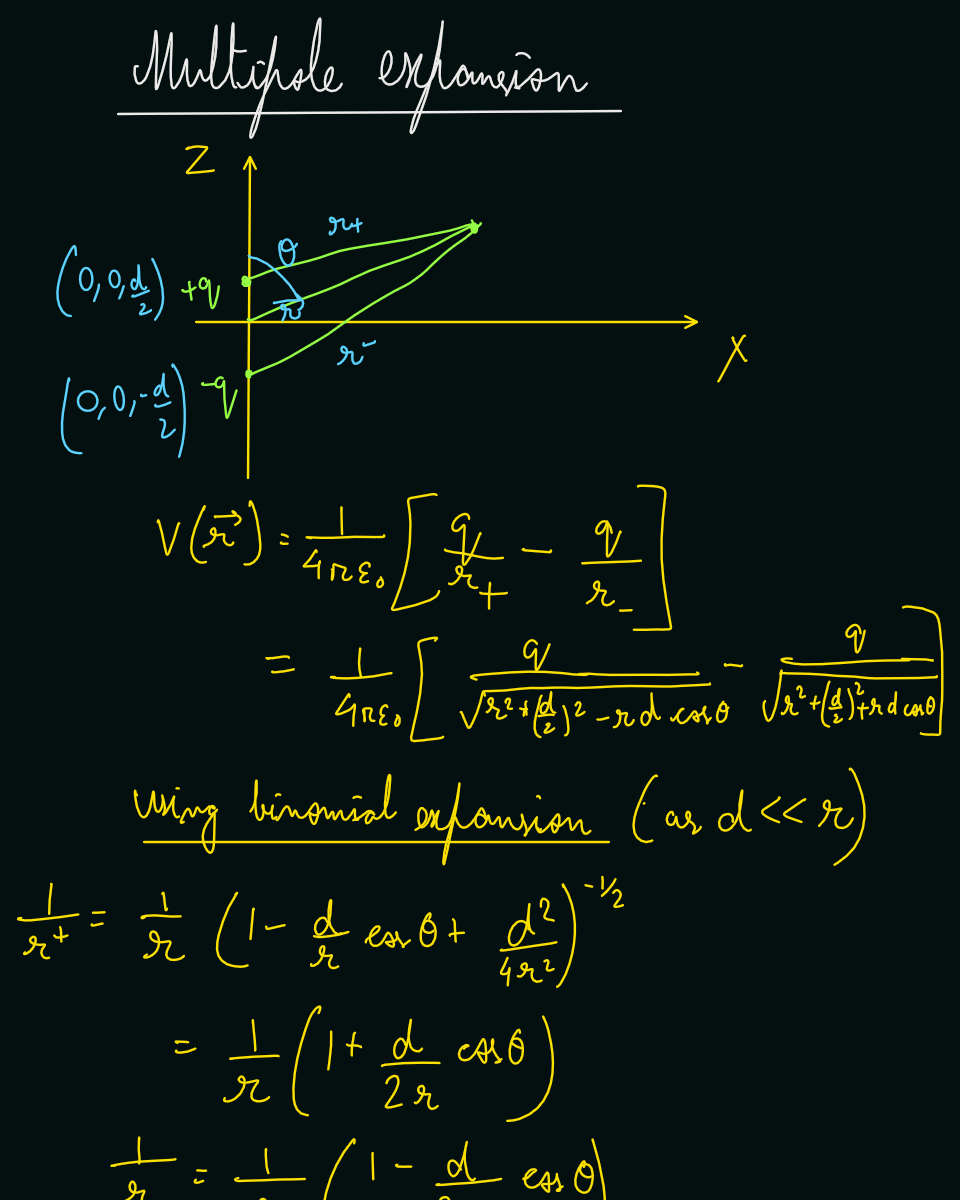 Multipole expansion
Z
r+
θ
(0, 0, d/2) +q
r⃗
X
r-
(0, 0, -d/2) -q
V(r⃗) = 1/4πε₀ [ q/r₊ - q/r₋ ]
= 1/4πε₀ [ q/√(r² + (d/2)² - r d cosθ) - q/√(r² + (d/2)² + r d cosθ) ]
using binomial expansion (as d << r)
1/r⁺ = 1/r (1 - d/r cosθ + d²/4r²)^(-1/2)
= 1/r (1 + d/2r cosθ)
1/r = 1/ (1 - d/ cosθ)